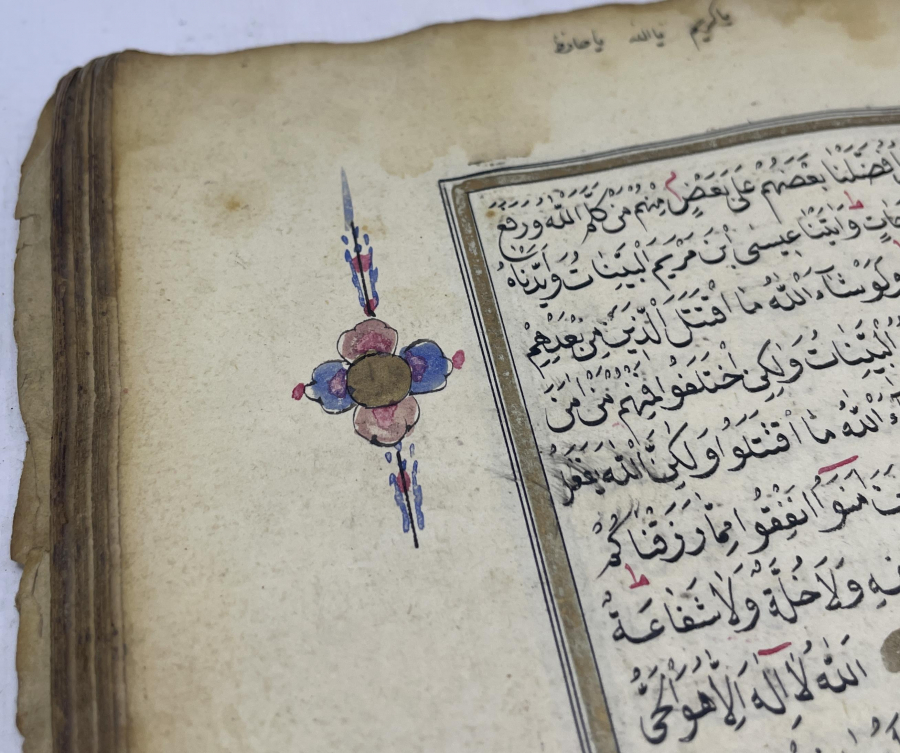 ياكريم ياالله ياحافظ
فَضَّلْنَا بَعْضَهُمْ عَلَى بَعْضٍ مِنْهُمْ مَنْ كَلَّمَ اللّٰهُ وَرَفَعَ
وَاٰتَيْنَا عِيسَى ابْنَ مَرْيَمَ الْبَيِّنَاتِ وَاَيَّدْنَاهُ
وَلَوْ شَاءَ اللّٰهُ مَا اقْتَتَلَ الَّذِينَ مِنْ بَعْدِهِمْ
الْبَيِّنَاتُ وَلٰكِنِ اخْتَلَفُوا فَمِنْهُمْ مَنْ
اللّٰهُ مَا اقْتَتَلُوا وَلٰكِنَّ اللّٰهَ يَفْعَلُ
اٰمَنُوا اَنْفِقُوا مِمَّا رَزَقْنَاكُمْ
وَلَا خُلَّةٌ وَلَا شَفَاعَةٌ
اَللّٰهُ لَا اِلٰهَ اِلَّا هُوَ الْحَيُّ